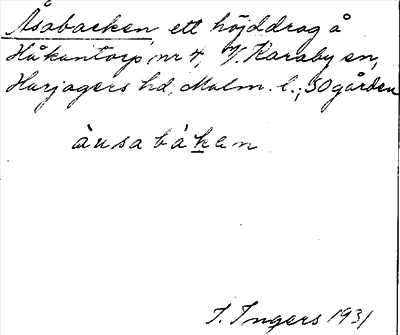 Åsabacken, ett höjddrag å
Håkantorp nr 4, V. Karaby sn,
Harjagers hd, Malm. l.; SOgården
àusabákan
I. Ingers 1931